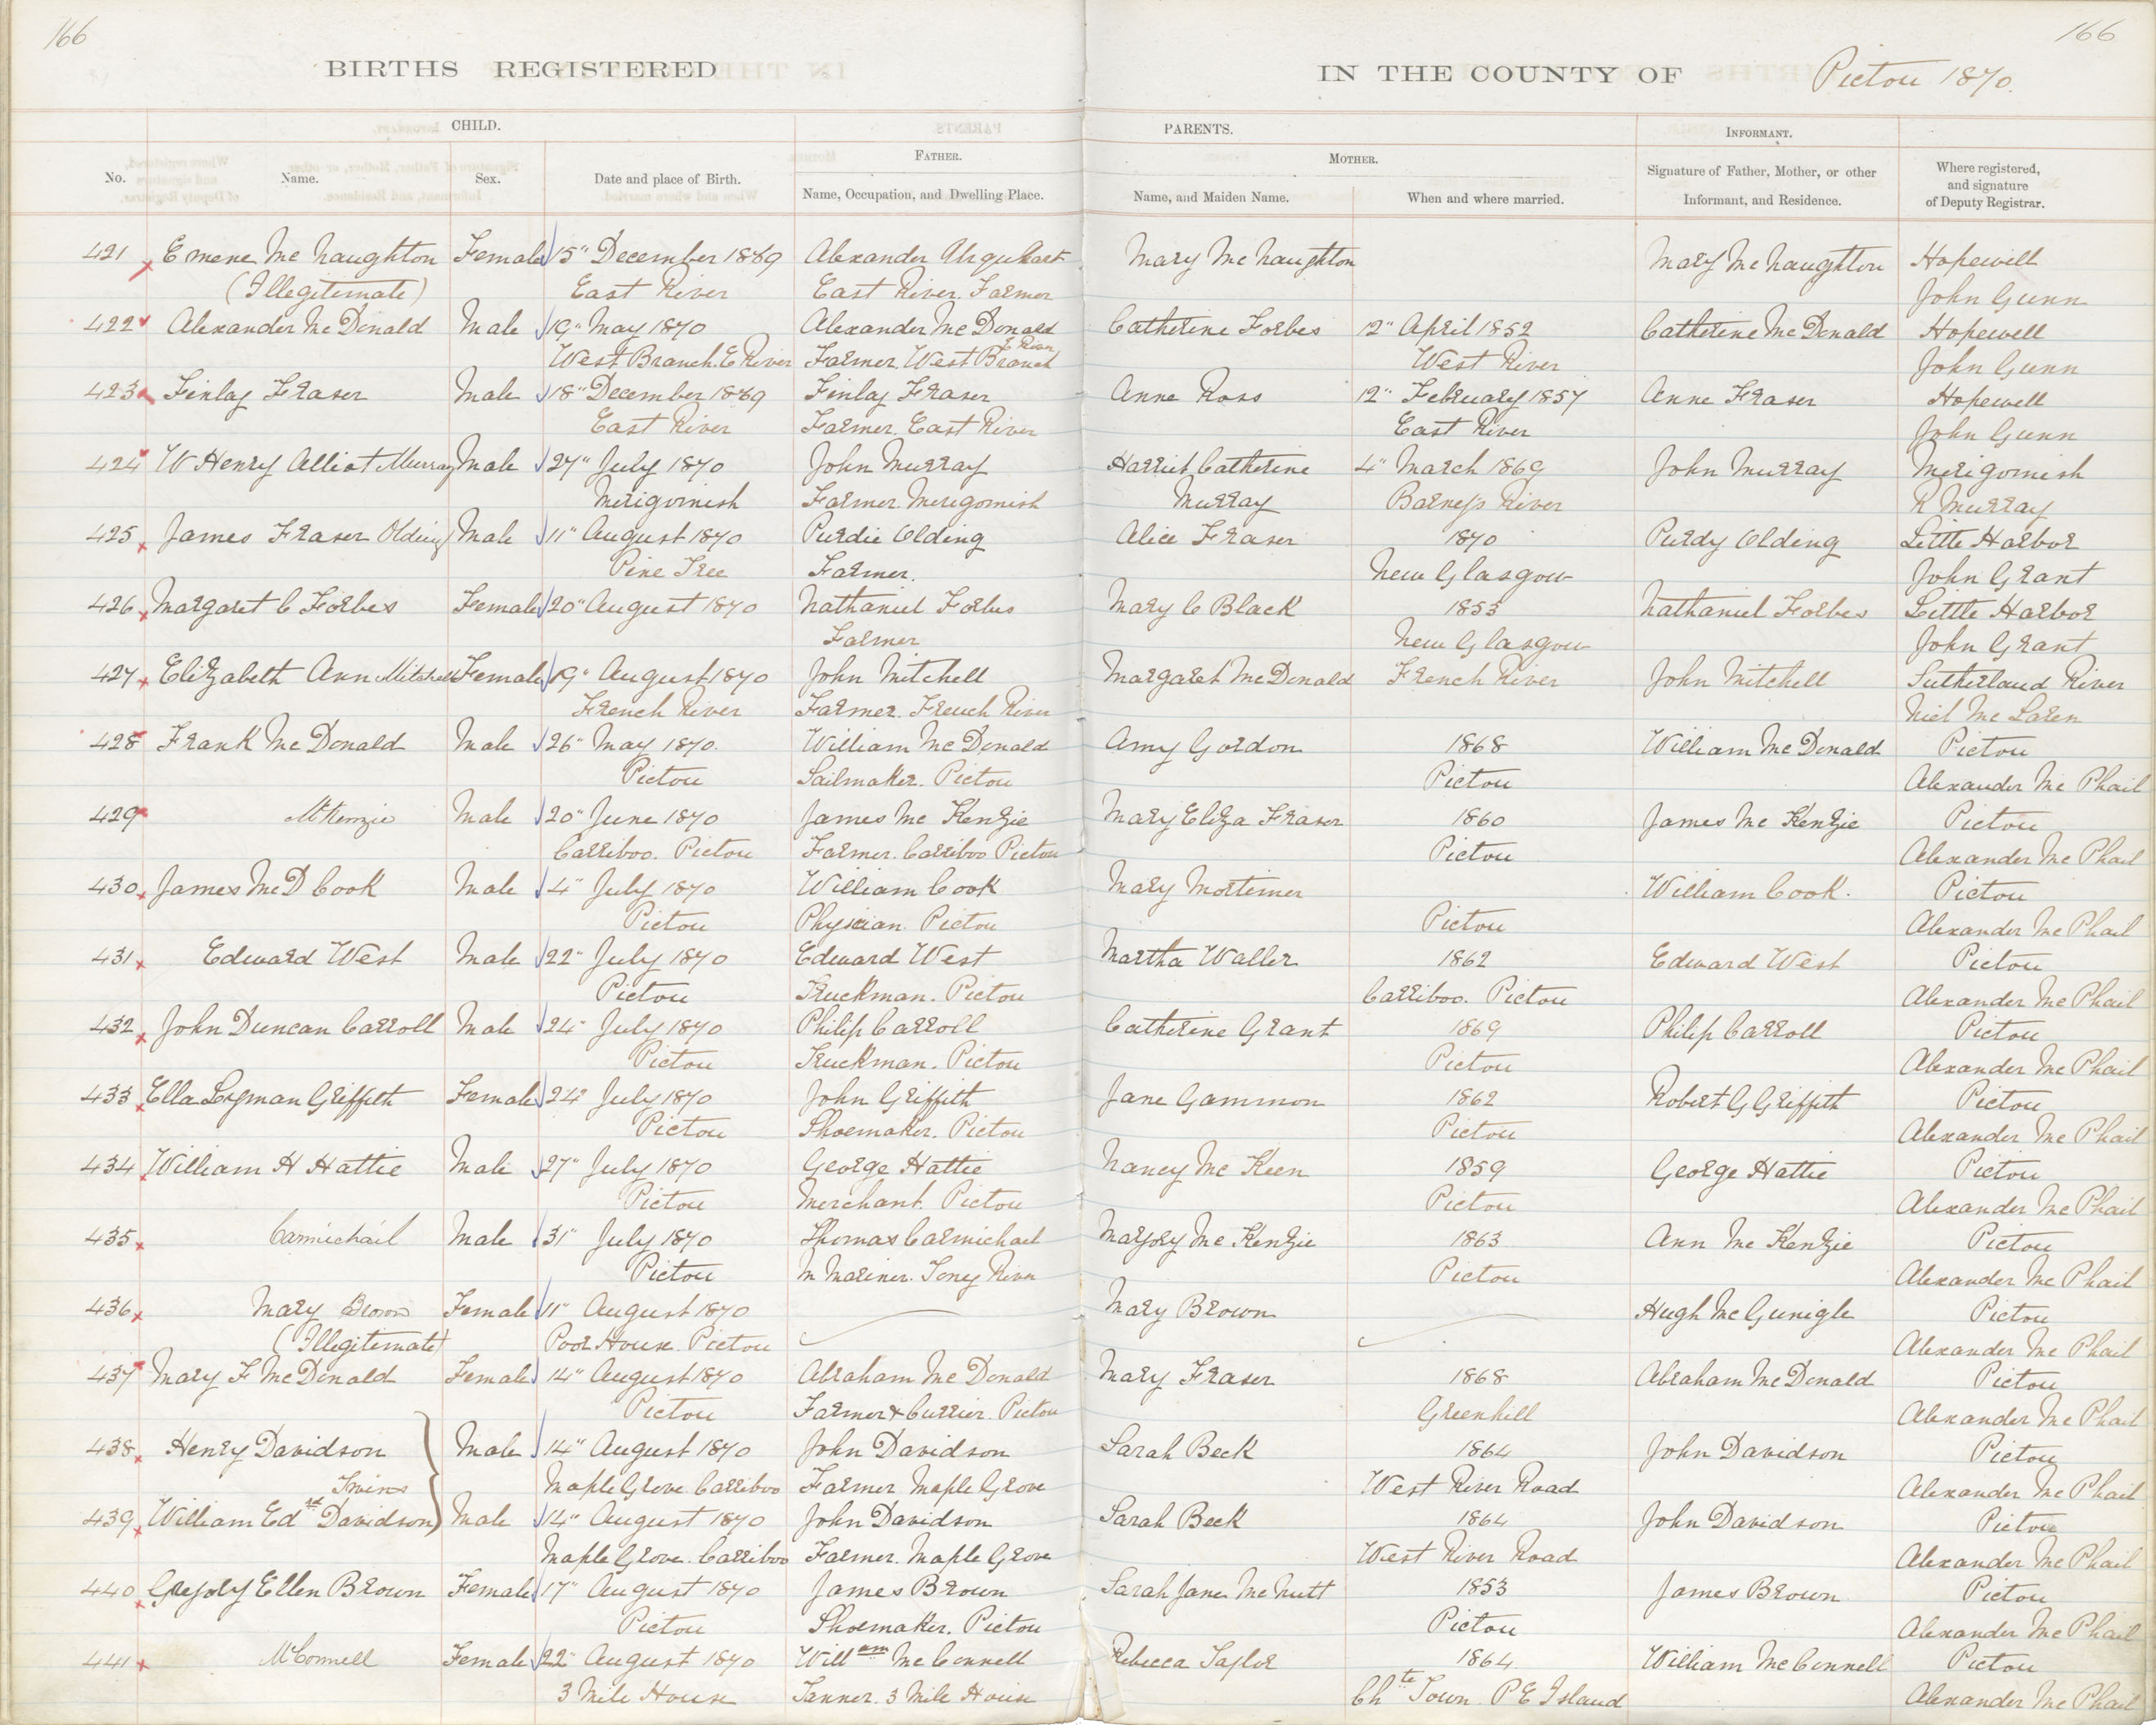 166
166
BIRTHS REGISTERED IN THE COUNTY OF Pictou 1870.
CHILD. PARENTS. INFORMANT.
FATHER. MOTHER.
No. Name. Sex. Date and place of Birth. Name, Occupation, and Dwelling Place. Name, and Maiden Name. When and where married. Signature of Father, Mother, or other Informant, and Residence. Where registered, and signature of Deputy Registrar.
421 Emene McNaughton Female 15" December 1869 Alexander Urquhart Mary McNaughton Mary McNaughton Hopewell
(Illegitimate) East River East River. Farmer John Gunn
422 Alexander McDonald Male 19" May 1870 Alexander McDonald Catherine Forbes 12" April 1852 Catherine McDonald Hopewell
West Branch. E River Farmer. West Branch E River West River John Gunn
423 Finlay Fraser Male 18" December 1869 Finlay Fraser Anne Ross 12" February 1857 Anne Fraser Hopewell
East River Farmer. East River East River John Gunn
424 W Henry Alliot Murray Male 27" July 1870 John Murray Harriet Catherine 4" March 1869 John Murray Merigomish
Merigomish Farmer. Merigomish Murray Barneys River R Murray
425 James Fraser Olding Male 11" August 1870 Purdie Olding Alice Fraser 1870 Purdy Olding Little Harbor
Pine Tree Farmer. New Glasgow John Grant
426 Margaret C Forbes Female 20" August 1870 Nathaniel Forbes Mary C Black 1853 Nathaniel Forbes Little Harbor
Farmer New Glasgow John Grant
427 Elizabeth Ann Mitchell Female 19" August 1870 John Mitchell Margaret McDonald French River John Mitchell Sutherland River
French River Farmer. French River Niel McLaren
428 Frank McDonald Male 26" May 1870. William McDonald Amy Gordon 1868 William McDonald Pictou
Pictou Sailmaker. Pictou Pictou Alexander McPhail
429 McKenzie Male 20" June 1870 James McKenzie Mary Eliza Fraser 1860 James McKenzie Pictou
Carriboo. Pictou Farmer. Carriboo Pictou Pictou Alexander McPhail
430 James McD Cook Male 4" July 1870 William Cook Mary Mortimer William Cook. Pictou
Pictou Physician. Pictou Pictou Alexander McPhail
431 Edward West Male 22" July 1870 Edward West Martha Waller 1862 Edward West Pictou
Pictou Truckman. Pictou Carriboo. Pictou Alexander McPhail
432 John Duncan Carroll Male 24" July 1870 Philip Carroll Catherine Grant 1869 Philip Carroll Pictou
Pictou Truckman. Pictou Pictou Alexander McPhail
433 Ella Lyman Griffith Female 24" July 1870 John Griffith Jane Gammon 1862 Robert G Griffith Pictou
Pictou Shoemaker. Pictou Pictou Alexander McPhail
434 William H Hattie Male 27" July 1870 George Hattie Nancy McKeen 1859 George Hattie Pictou
Pictou Merchant. Pictou Pictou Alexander McPhail
435 Carmichail Male 31" July 1870 Thomas Carmichael Marjory McKenzie 1863 Ann McKenzie Pictou
Pictou M Mariner. Toney River Pictou Alexander McPhail
436 Mary Brown Female 11" August 1870 Mary Brown Hugh McGunigle Pictou
(Illegitimate) Poor House. Pictou Alexander McPhail
437 Mary F McDonald Female 14" August 1870 Abraham McDonald Mary Fraser 1868 Abraham McDonald Pictou
Pictou Farmer & Currier. Pictou Greenhill Alexander McPhail
438 Henry Davidson Male 14" August 1870 John Davidson Sarah Beck 1864 John Davidson Pictou
Twins Maple Grove. Carriboo Farmer Maple Grove West River Road Alexander McPhail
439 William Edrd Davidson Male 14" August 1870 John Davidson Sarah Beck 1864 John Davidson Pictou
Maple Grove. Carriboo Farmer. Maple Grove West River Road Alexander McPhail
440 Ellen Brown Female 17" August 1870 James Brown Sarah Jane McNutt 1853 James Brown Pictou
Pictou Shoemaker. Pictou Pictou Alexander McPhail
441 McConnell Female 22" August 1870 Willam McConnell Rebecca Taylor 1864 William McConnell Pictou
3 Mile House Tanner. 3 Mile House Chte Town. P E Island Alexander McPhail